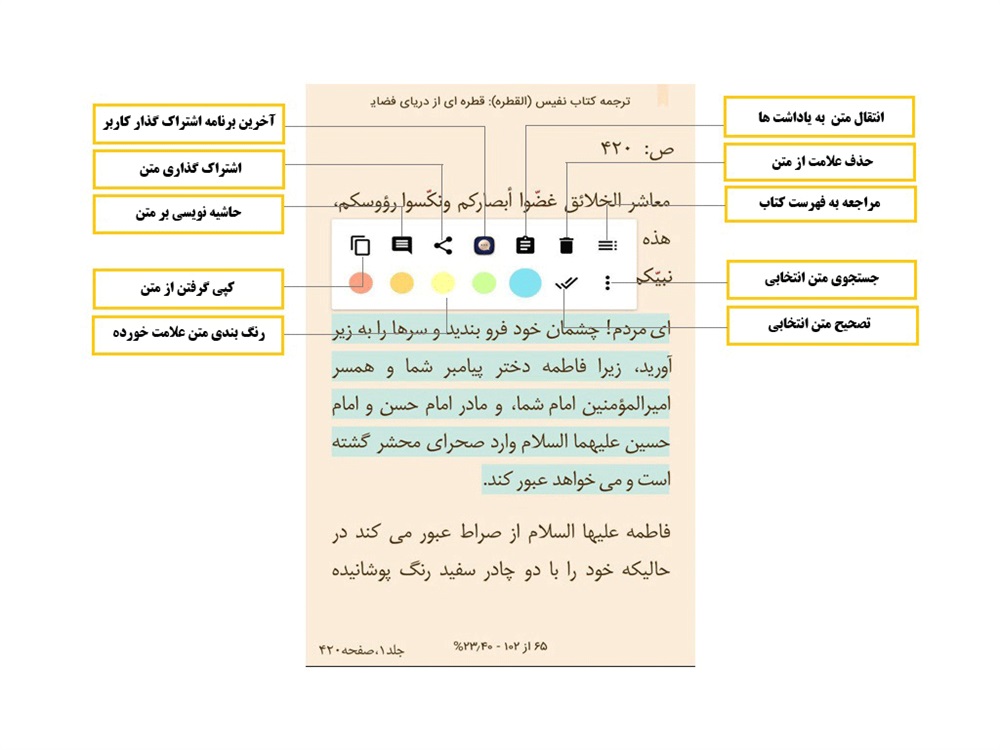 ترجمه کتاب نفیس (القطره): قطره ای از دریای فضایـ
انتقال متن به یاداشت ها
حذف علامت از متن
مراجعه به فهرست کتاب
جستجوی متن انتخابی
تصحیح متن انتخابی
آخرین برنامه اشتراک گذار کاربر
اشتراک گذاری متن
حاشیه نویسی بر متن
کپی گرفتن از متن
رنگ بندی متن علامت خورده
ص: ۴۲۰
معاشر الخلائق غضّوا أبصارکم ونکّسوا رؤوسکم،
هذه
نبیّکم
ای مردم! چشمان خود فرو بندید و سرها را به زیر
آورید، زیرا فاطمه دختر پیامبر شما و همسر
امیرالمؤمنین امام شما، و مادر امام حسن و امام
حسین علیهما السلام وارد صحرای محشر گشته
است و می خواهد عبور کند.
فاطمه علیها السلام از صراط عبور می کند در
حالیکه خود را با دو چادر سفید رنگ پوشانیده
۶۵ از ۱۰۲ - ۲۳٫۴۰%
جلد۱،صفحه۴۲۰